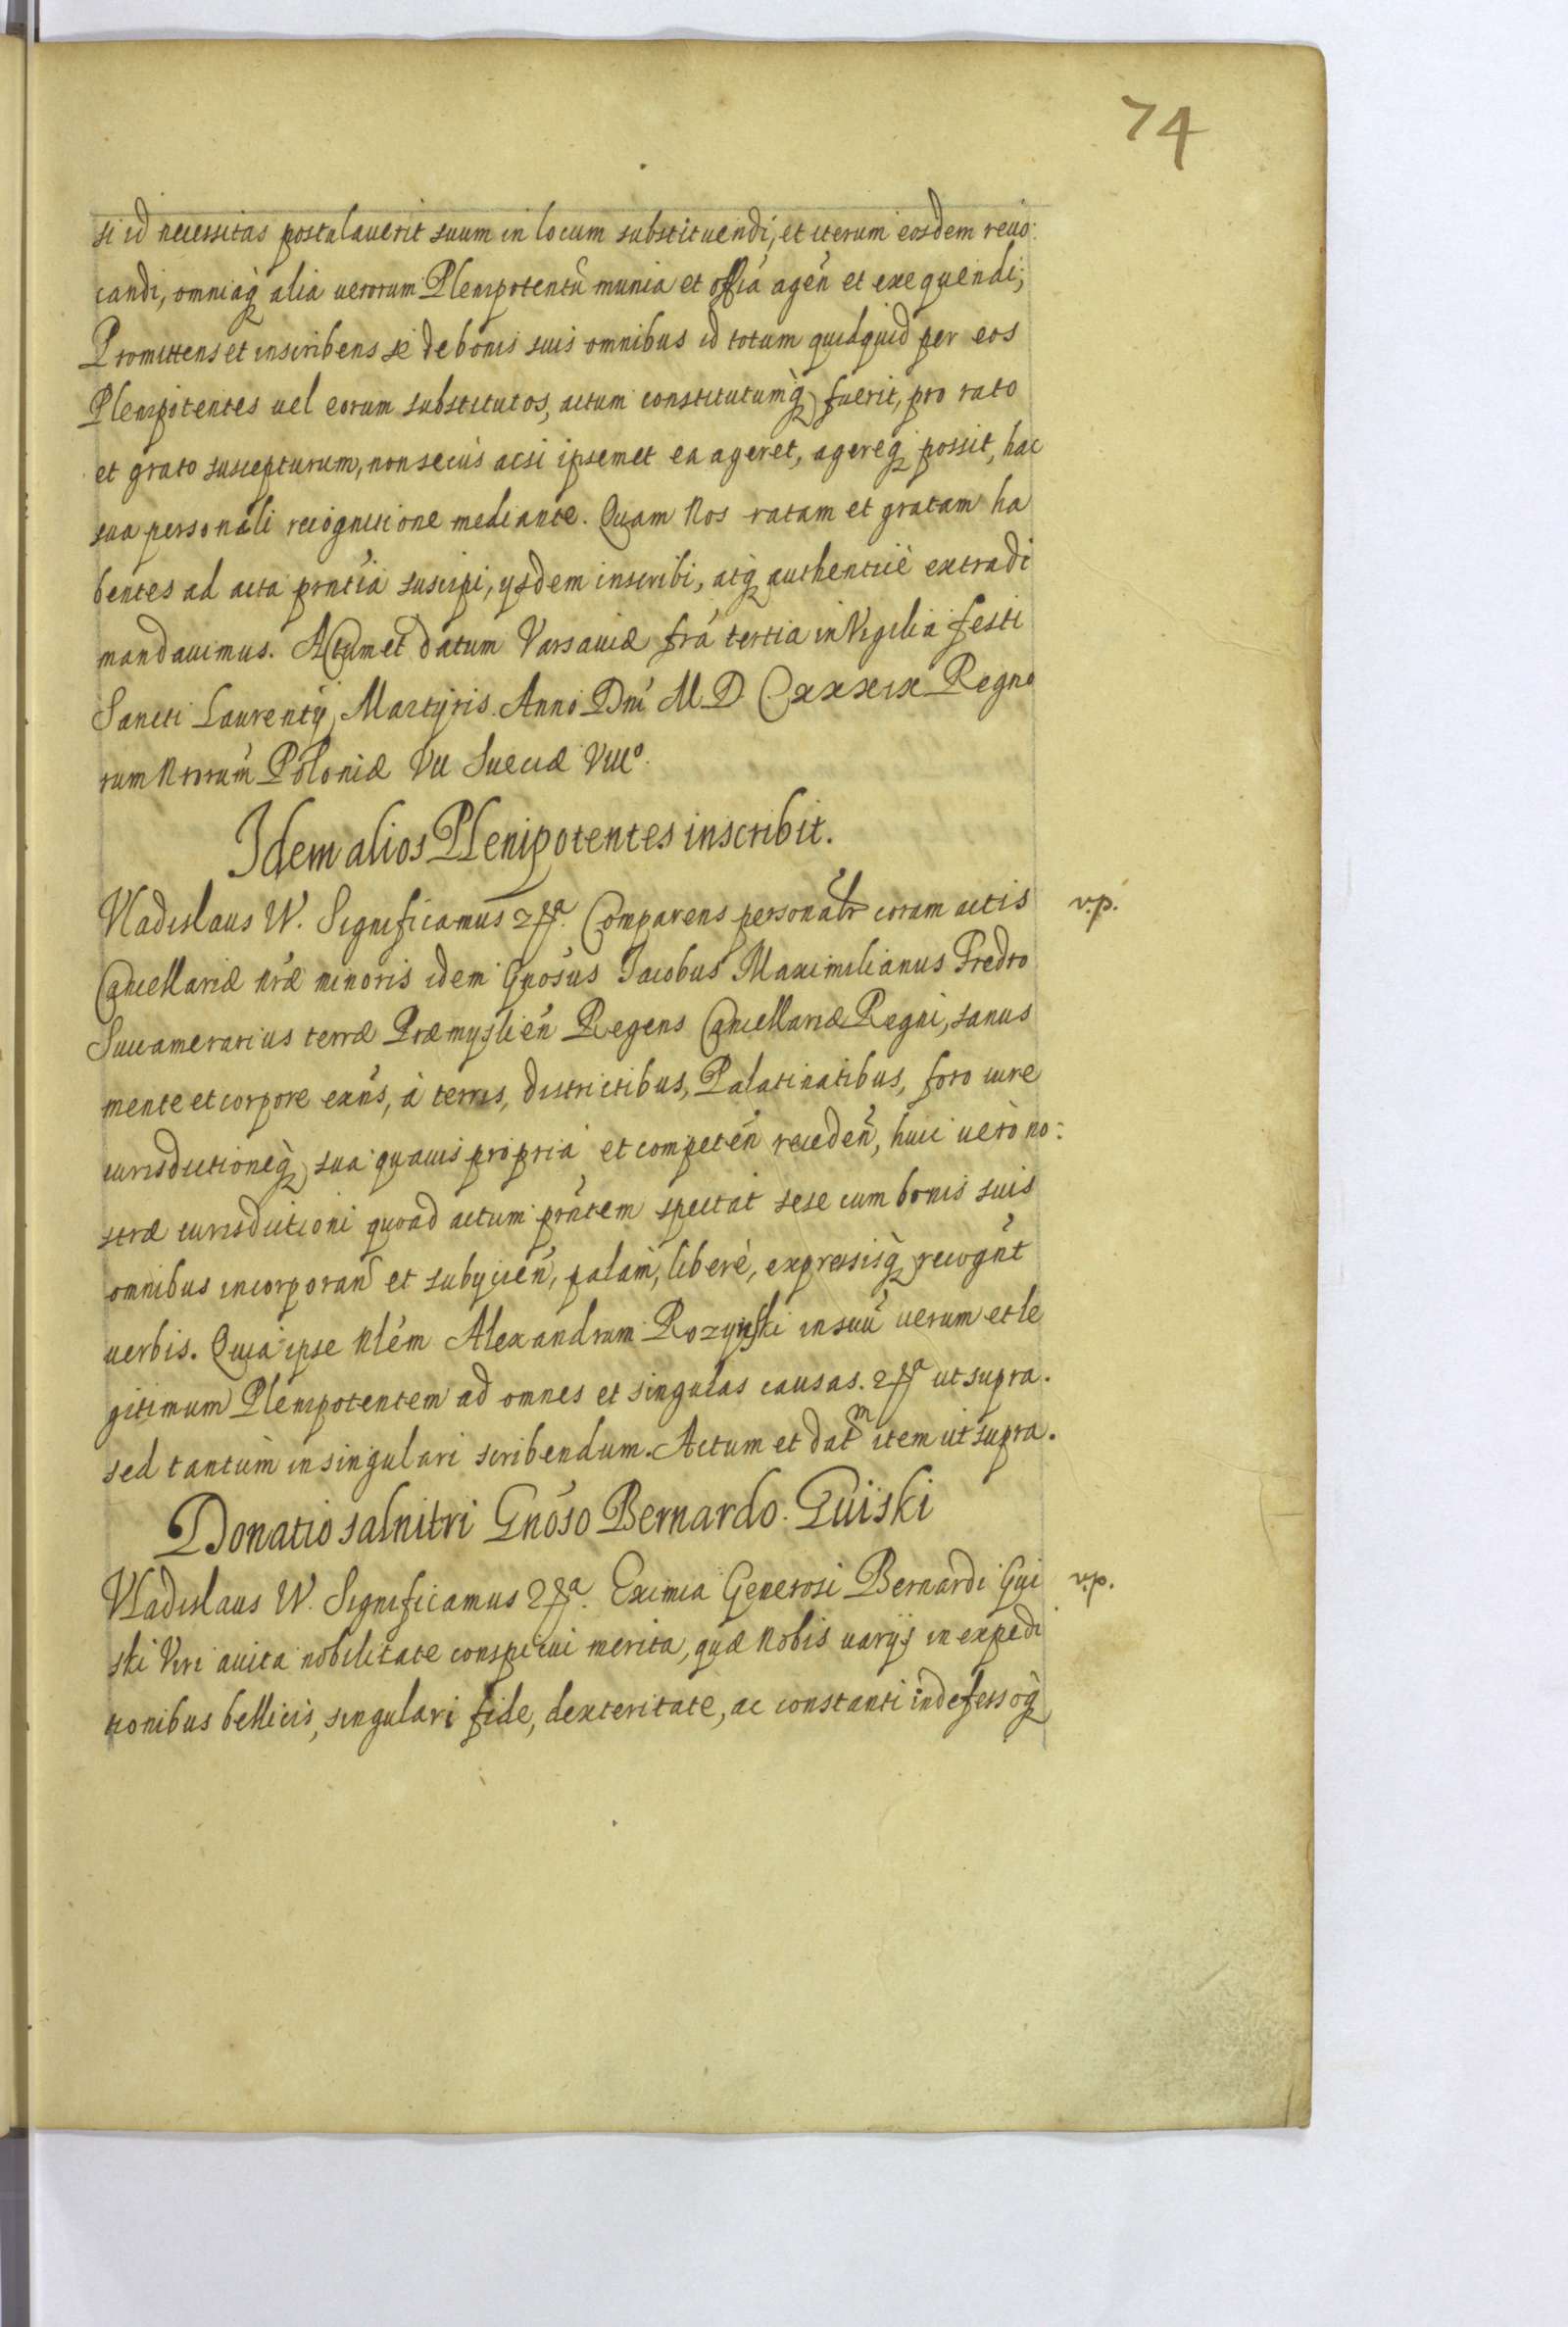 74
si id necessitas postulauerit suum in locum substituendi, et iterum eosdem reuo:
candi, omniaq́ alia uerorum Plenipotentũ munia et offia agen̄ et exequendi;
Promittens et inscribens se de bonis suis omnibus id totum quidquid per eos
Plenipotentes uel eorum substitutos, actum constitutumq́ fuerit, pro rato
et grato suscepturum, non secus acsi ipsemet ea ageret, agereq́ possit, hac
sua personali recognitione mediante. Quam Nos ratam et gratam ha
bentes ad acta prntia suscipi, ysdem inscribi, atq́ authenticè extradi
mandauimus. Actum et datum Varsauiæ fra tertia in Vigilia festi
Sancti Laurentÿ Martyris Anno Dni M D CXXXIX Regno
rum Nrorum Poloniæ VII Sueciæ VIIIº.
Idem alios Plenipotentes inscribit.
Vladislaus IV. Significamus &a. Comparens personalr coram actis v.p.
Cancellariæ nræ minoris idem Gnosus Jacobus Maximilianus Fredro
Succamerarius terræ Præmyslien̄ Regens Cancellariæ Regni, sanus
mente et corpore exns, à terris, districtibus, Palatinatibus, foro iure
iurisdictioneq́ sua quauis propria et competen̄ receden̄, huic uerò no:
stræ iurisdictioni quoad actum prntem spectat sese cum bonis suis
omnibus incorporan̄ et subycien̄, palàm, liberè, expressisq́ recognt
uerbis. Quia ipse Nlem Alexandrum Rozynski in suũ uerum et le
gitimum Plenipotentem ad omnes et singulas causas. &a ut supra.
sed tantùm in singulari scribendum. Actum et datm item ut supra.
Donatio salnitri Gnoso Bernardo Guiski
Vladislaus IV. Significamus &a. Eximia Generosi Bernardi Gui v.p.
ski Viri auita nobilitate conspicui merita, quæ Nobis uarÿs in expedi
tionibus bellicis, singulari fide, dexteritate, ac constanti indefessoq́